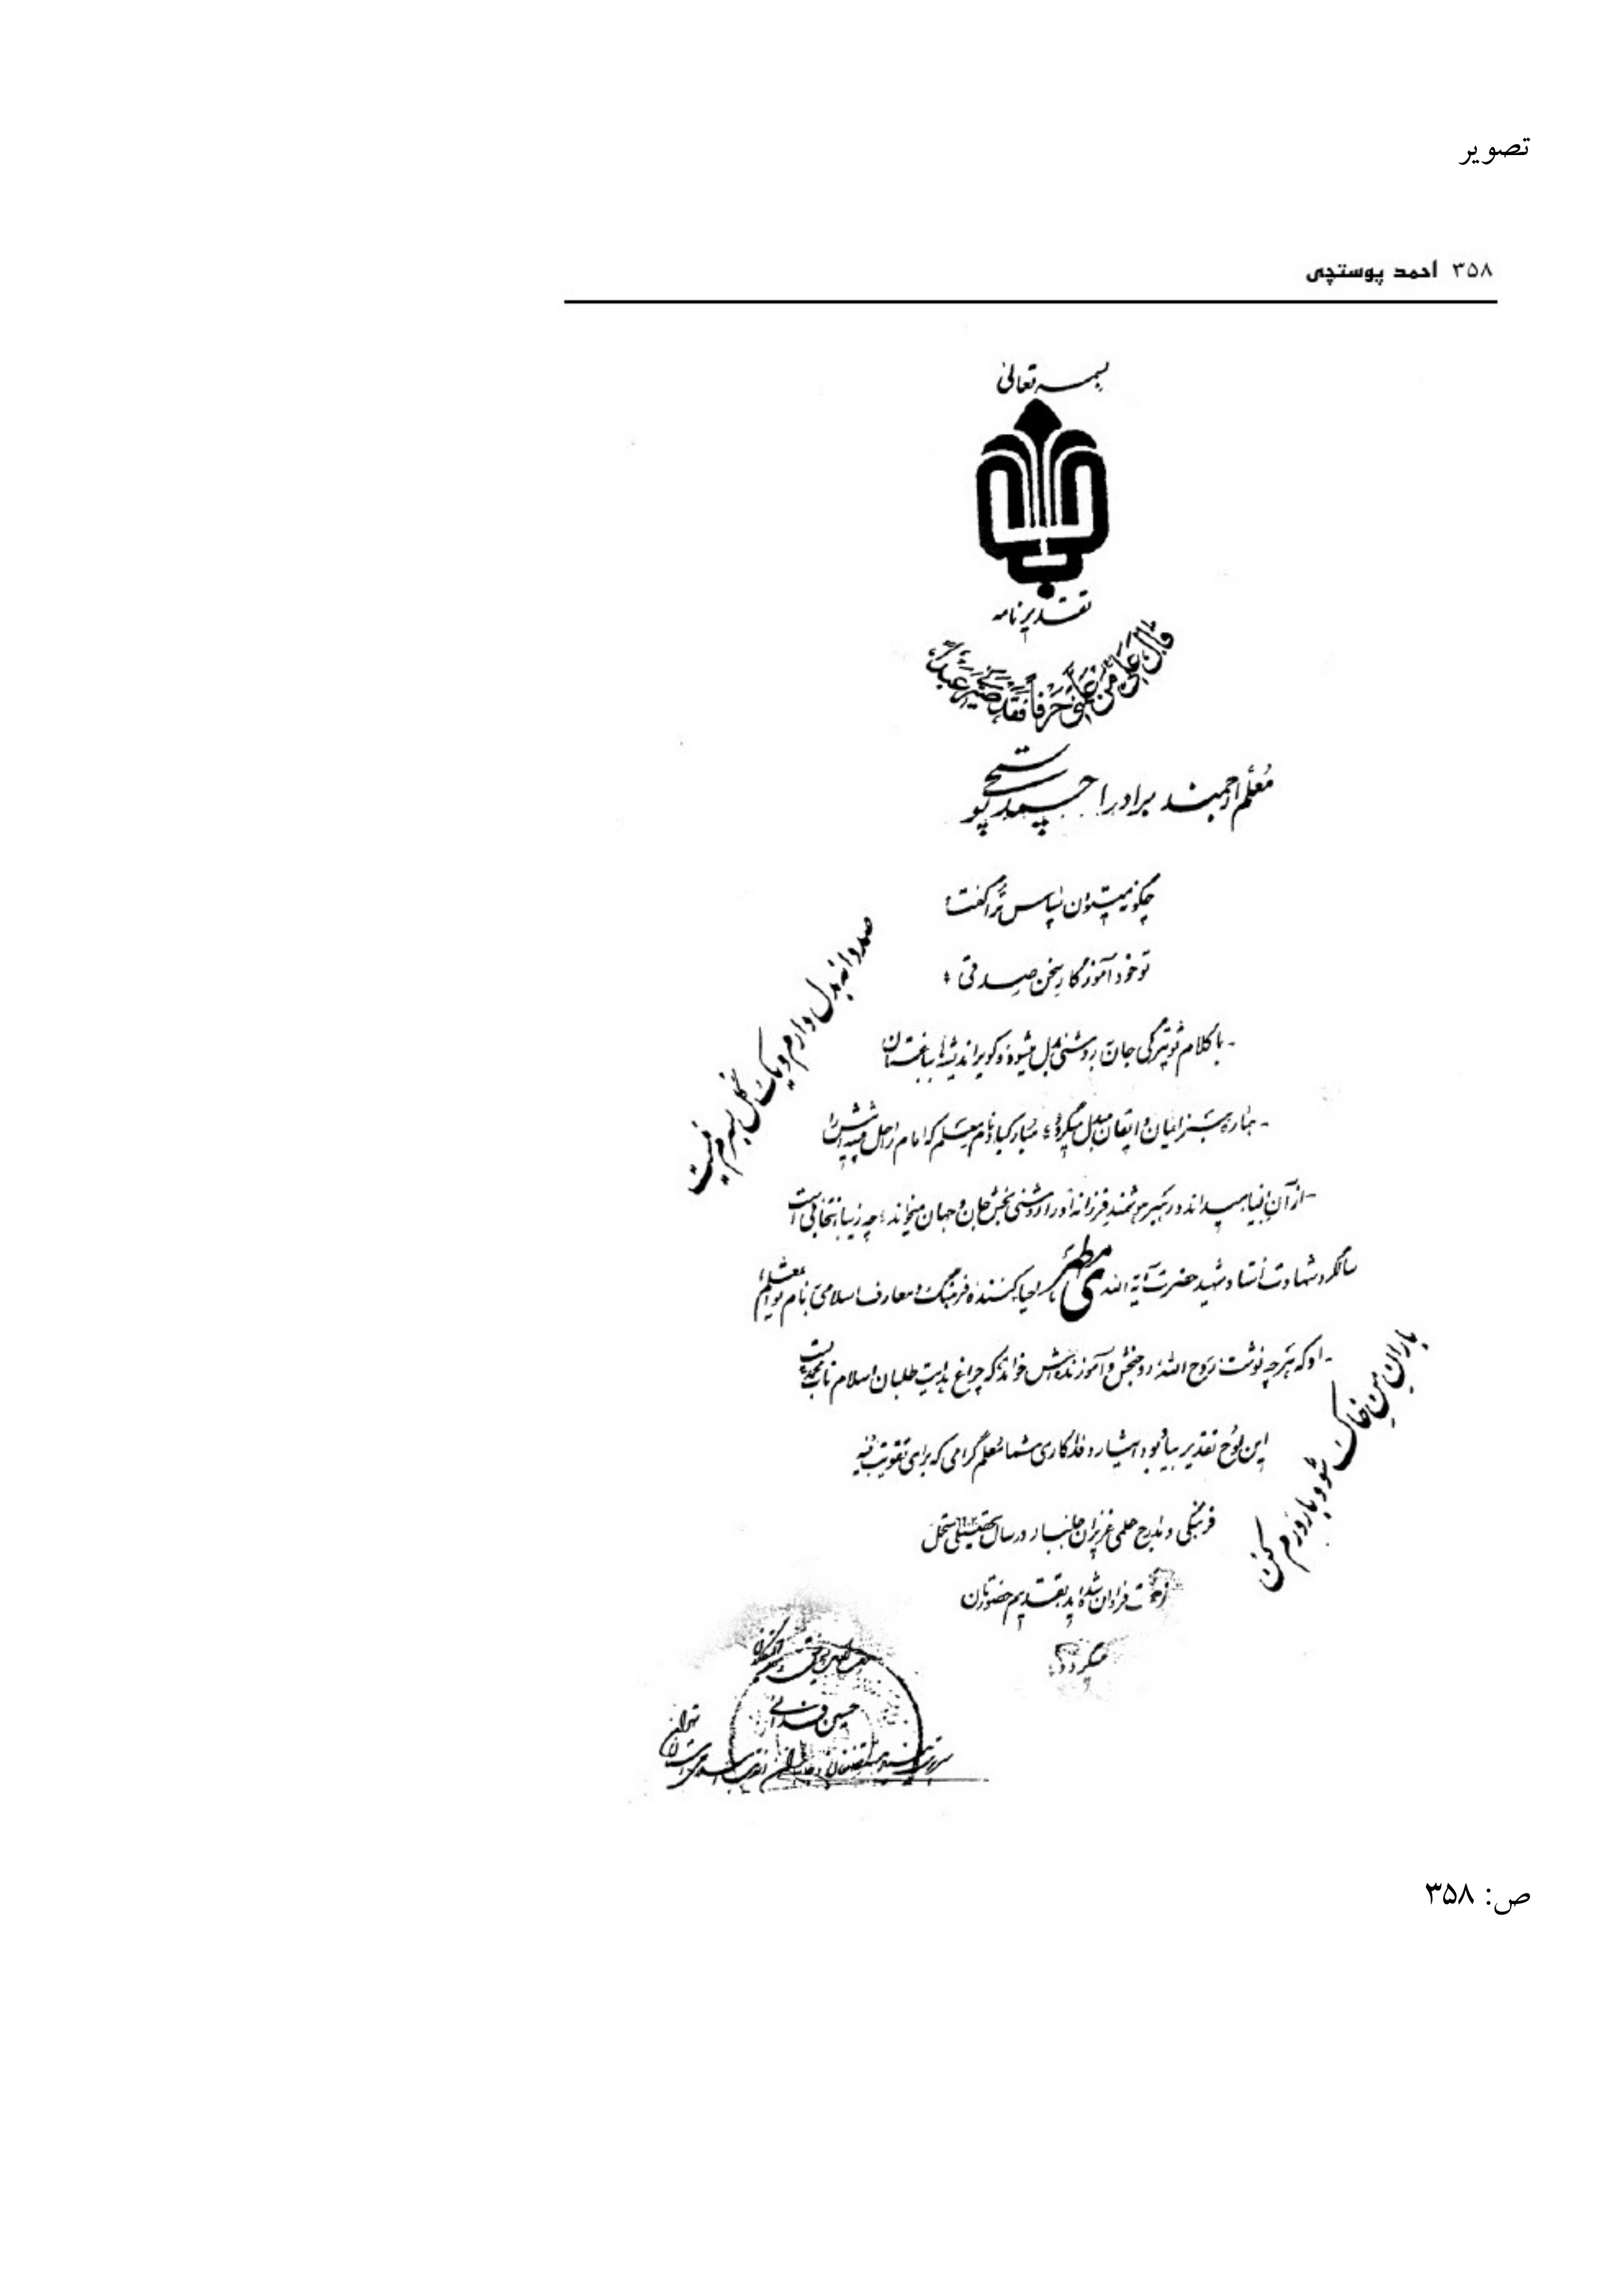 تصویر
۳۵۸ احمد پوستچی
بسمه تعالی
تقدیرنامه
قالَ عَلی مَن عَلَّمَنی حَرفاً فَقَد صَیَّرَنی عَبداً
معلم ارجمند برادر احمد پوستچی
چگونه میتوان سپاس ترا گفت؛
تو خود آموزگار سخن صدقی؛
- با کلام تو تیرگی جان بروشنی بدل میشود و کویر اندیشه‌ها بباغستان
- بهاره سبز ایمان و ایقان مبدل میگردد؛ مبارکباد نام معلم که امام راحل پیشه‌اش را
- از آن انبیا میداند و رهبر هوشمند فرزانه او را روشنی بخش جان و جهان میخواند؛ چه زیبا انتخابی است
سالگرد شهادت استاد شهید حضرت آیة الله مطهری احیا کننده فرهنگ و معارف اسلامی بنام تو ای معلم
- او که هر چه نوشت روح الله؛ روحبخش و آموزنده‌اش خواند که چراغ هدایت طلبان اسلام ناب محمدیست
این لوح تقدیر بپاس وجود ایثار و فداکاری شما معلم گرامی که برای تقویت بنیه
فرهنگی و مدارج علمی عزیزان جانباز در سال تحصیلی متحمل
زحمات فراوان شده‌اید تقدیم حضورتان
میگردد؛
صد دانه بدل دارم و یک گل بسرم نیست
باران من خاک شو و بارورم کن
حسین فدائی
ص: ۳۵۸